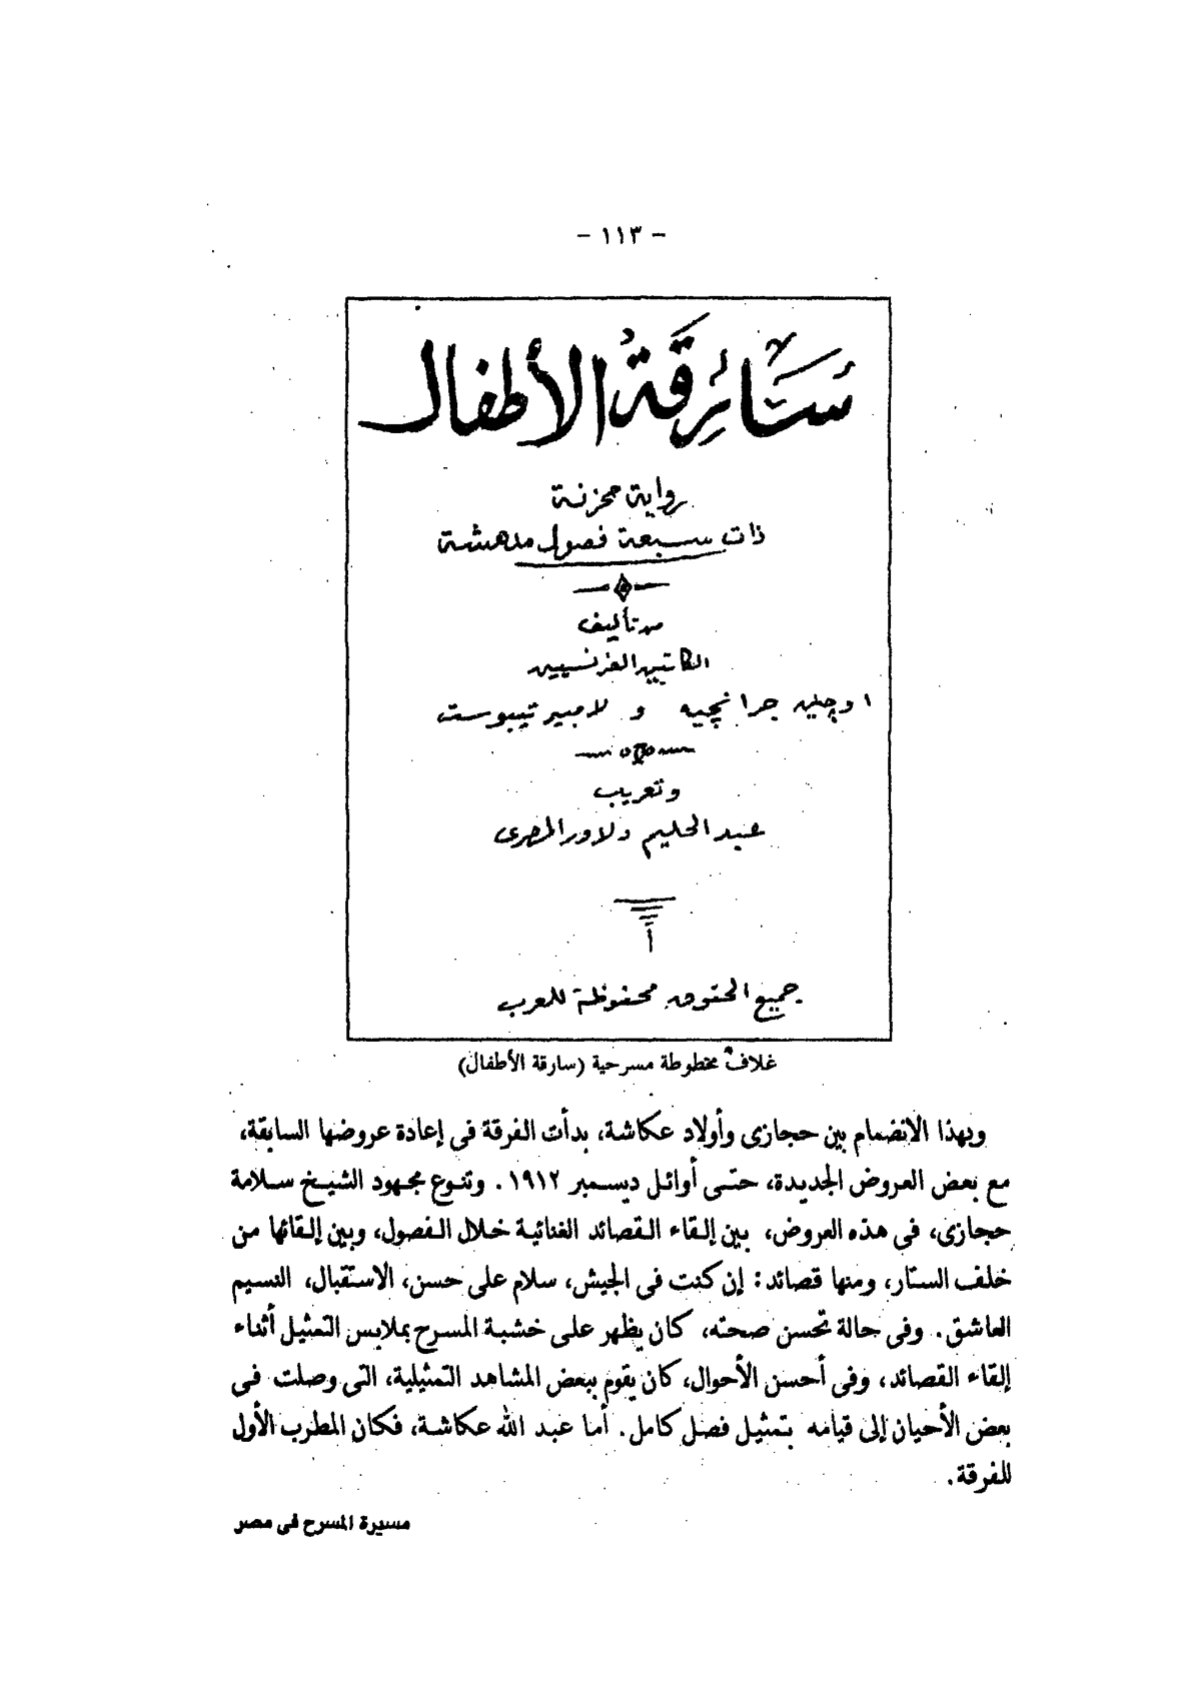 - ١١٣ -
سَارِقَةُ الأطفال
رواية محزنة
ذات سبعة فصول مدهشة
من تأليف
الكاتبين الفرنسيين
اوجين جرانجيه و لامبير تيبوست
وتعريب
عبد الحليم دلاور المصرى
جميع الحقوق محفوظة للمعرب
غلاف مخطوطة مسرحية (سارقة الأطفال)
وبهذا الانضمام بين حجازى وأولاد عكاشة، بدأت الفرقة فى إعادة عروضها السابقة،
مع بعض العروض الجديدة، حتى أوائل ديسمبر ١٩١٢. وتنوع مجهود الشيخ سلامة
حجازى، فى هذه العروض، بين إلقاء القصائد الغنائية خلال الفصول، وبين إلقائها من
خلف الستار، ومنها قصائد: إن كنت فى الجيش، سلام على حسن، الاستقبال، النسيم
العاشق. وفى حالة تحسن صحته، كان يظهر على خشبة المسرح بملابس التمثيل أثناء
إلقاء القصائد، وفى أحسن الأحوال، كان يقوم ببعض المشاهد التمثيلية، التى وصلت فى
بعض الأحيان إلى قيامه بتمثيل فصل كامل. أما عبد الله عكاشة، فكان المطرب الأول
للفرقة.
مسيرة المسرح فى مصر